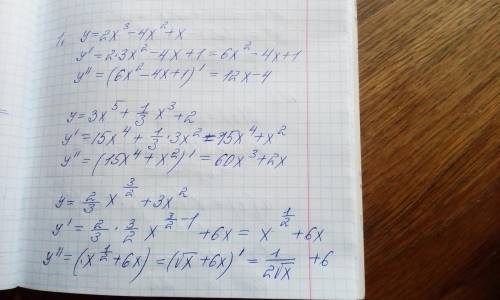 1. y=2x³-4x²+x
y'=2·3x²-4x+1=6x²-4x+1
y''=(6x²-4x+1)'=12x-4
y=3x⁵+1/3 x³+2
y'=15x⁴+1/3·3x²=15x⁴+x²
y''=(15x⁴+x²)'=60x³+2x
y=2/3 x^(3/2)+3x²
y'=2/3·3/2 x^(3/2-1)+6x=x^(1/2)+6x
y''=(x^(1/2)+6x)'=(√x+6x)'=1/(2√x)+6